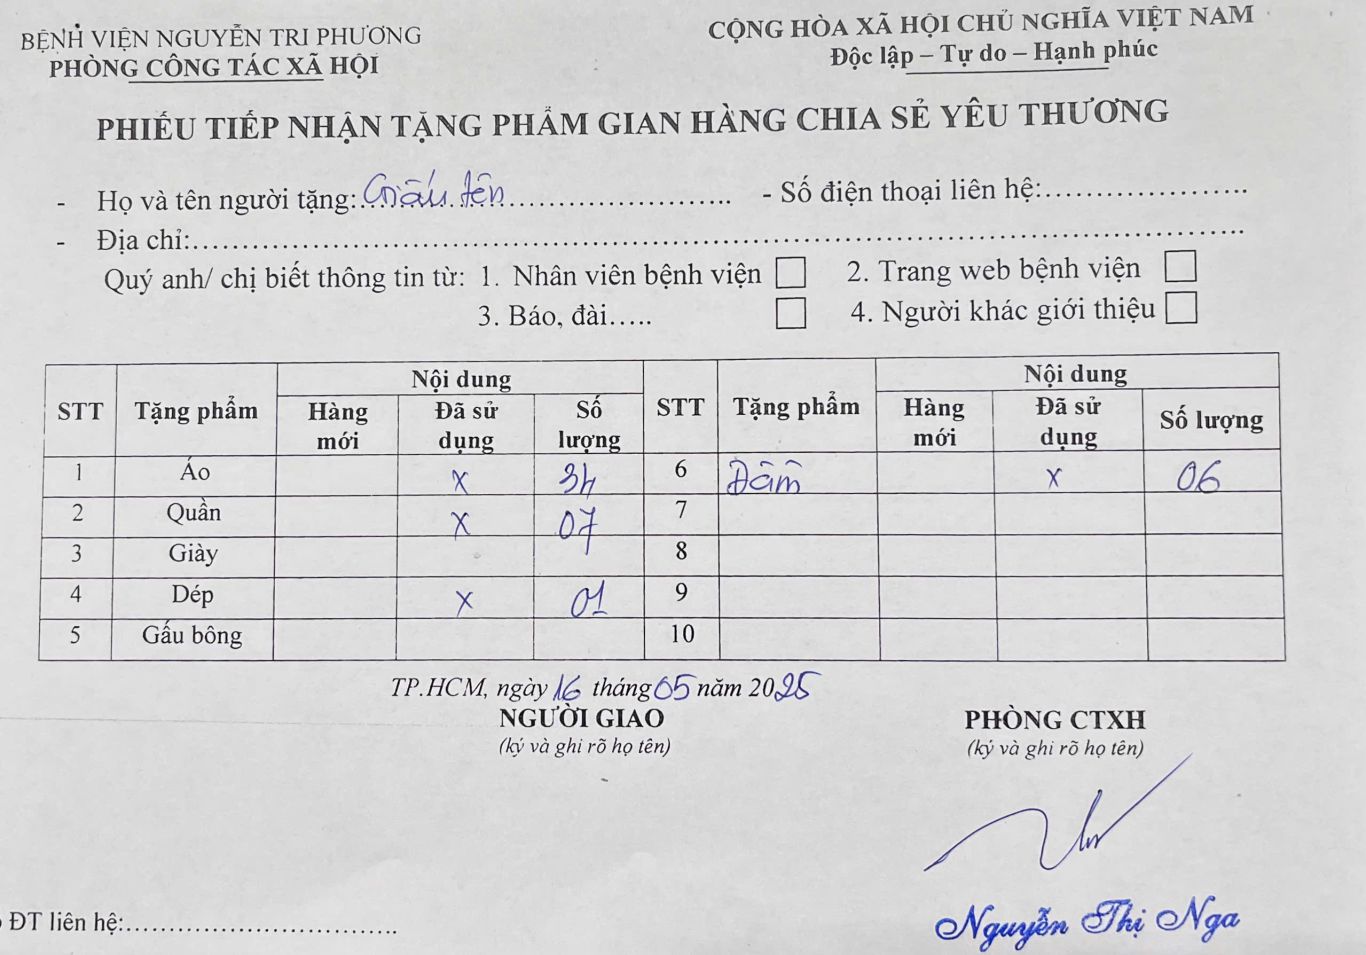 BỆNH VIỆN NGUYỄN TRI PHƯƠNG
PHÒNG CÔNG TÁC XÃ HỘI
CỘNG HÒA XÃ HỘI CHỦ NGHĨA VIỆT NAM
Độc lập – Tự do – Hạnh phúc
PHIẾU TIẾP NHẬN TẶNG PHẨM GIAN HÀNG CHIA SẺ YÊU THƯƠNG
- Họ và tên người tặng: Giấu tên - Số điện thoại liên hệ:....................
- Địa chỉ:....................
Quý anh/ chị biết thông tin từ: 1. Nhân viên bệnh viện ☐ 2. Trang web bệnh viện ☐
3. Báo, đài..... ☐ 4. Người khác giới thiệu ☐
STT Tặng phẩm Nội dung STT Tặng phẩm Nội dung
Hàng mới Đã sử dụng Số lượng Hàng mới Đã sử dụng Số lượng
1 Áo x 34 6 Đầm x 06
2 Quần x 07 7
3 Giày 8
4 Dép x 01 9
5 Gấu bông 10
TP.HCM, ngày 16 tháng 05 năm 2025
NGƯỜI GIAO PHÒNG CTXH
(ký và ghi rõ họ tên) (ký và ghi rõ họ tên)
ĐT liên hệ:....................
Nguyễn Thị Nga